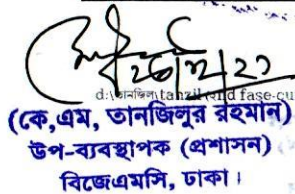 d:\তানজিল\tanzil\2nd fase-cu
(কে,এম, তানজিলুর রহমান)
উপ-ব্যবস্থাপক (প্রশাসন)
বিজেএমসি, ঢাকা।